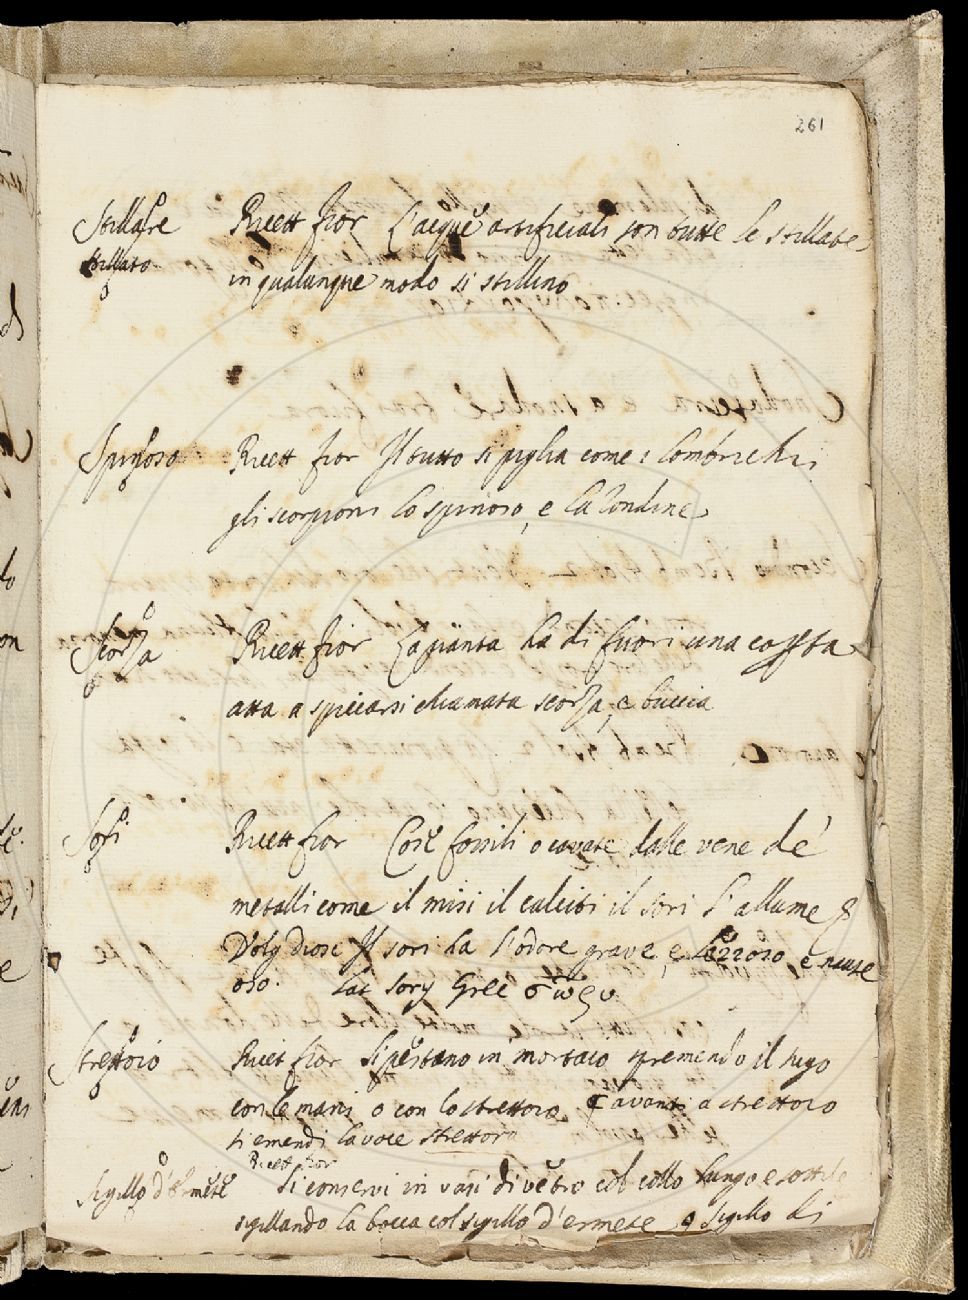 261
Stillare Ricett fior L'acque artificiali son tutte le stillate
stillato in qualunque modo si stillino
Spinoso Ricett fior Il tutto si piglia come i lombrichi
gli scorpioni lo spinoso, e la londine
Scorza Ricett fior La pianta ha di fuori una costa
atta a spiccarsi chiamata scorza, e buccia
Sori Ricett fior Cose fossili o cavate dalle vene de'
metalli come il misi il calciti il sori l'allume &
Volg Diosc Il sori ha l'odore grave, e lezzoso e nause
oso. Lat Sory Grec σῶρυ
Strettoio Ricet fior Si pestano in mortaio spremendo il sugo
con le mani o con lo strettoio avanti a strettoio
si emendi la voce strettoro
Ricett fior
Sigillo d'Ermete Si conservi in vasi di vetro col collo lungo e sottile
sigillando la bocca col sigillo d'ermete o sigillo di